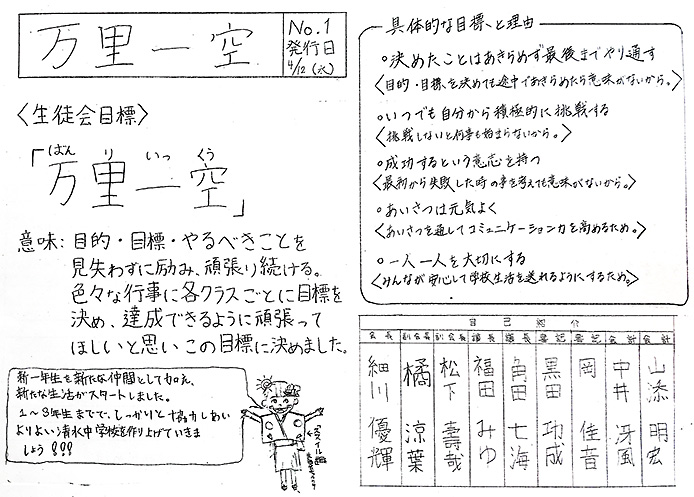 万里一空
No.1
発行日
4/12(水)
〈生徒会目標〉
ばん り いっ くう
「万里一空」
意味:目的・目標・やるべきことを
見失わずに励み、頑張り続ける。
色々な行事に各クラスごとに目標を
決め、達成できるように頑張って
ほしいと思いこの目標に決めました。
新一年生を新たな仲間として加え、
新たな生活がスタートしました。
1〜3年生までで、しっかりと協力しあい
よりよい清水中学校を作り上げていきま
しょう!!!
具体的な目標と理由
○決めたことはあきらめず最後までやり通す
〈目的・目標を決めても途中であきらめたら意味がないから。〉
○いつでも自分から積極的に挑戦する
〈挑戦しないと何事も始まらないから。〉
○成功するという意志を持つ
〈最初から失敗した時の事を考えても意味がないから。〉
○あいさつは元気よく
〈あいさつを通してコミュニケーション力を高めるため。〉
○一人一人を大切にする
〈みんなが安心して学校生活を送れるようにするため。〉
自己紹介
会長 副会長 副会長 議長 議長 書記 書記 会計 会計
細川 優輝
橘 涼葉
松下 壽哉
福田 みゆ
角田 七海
黒田 功成
岡 佳音
中井 冴風
山添 明宏